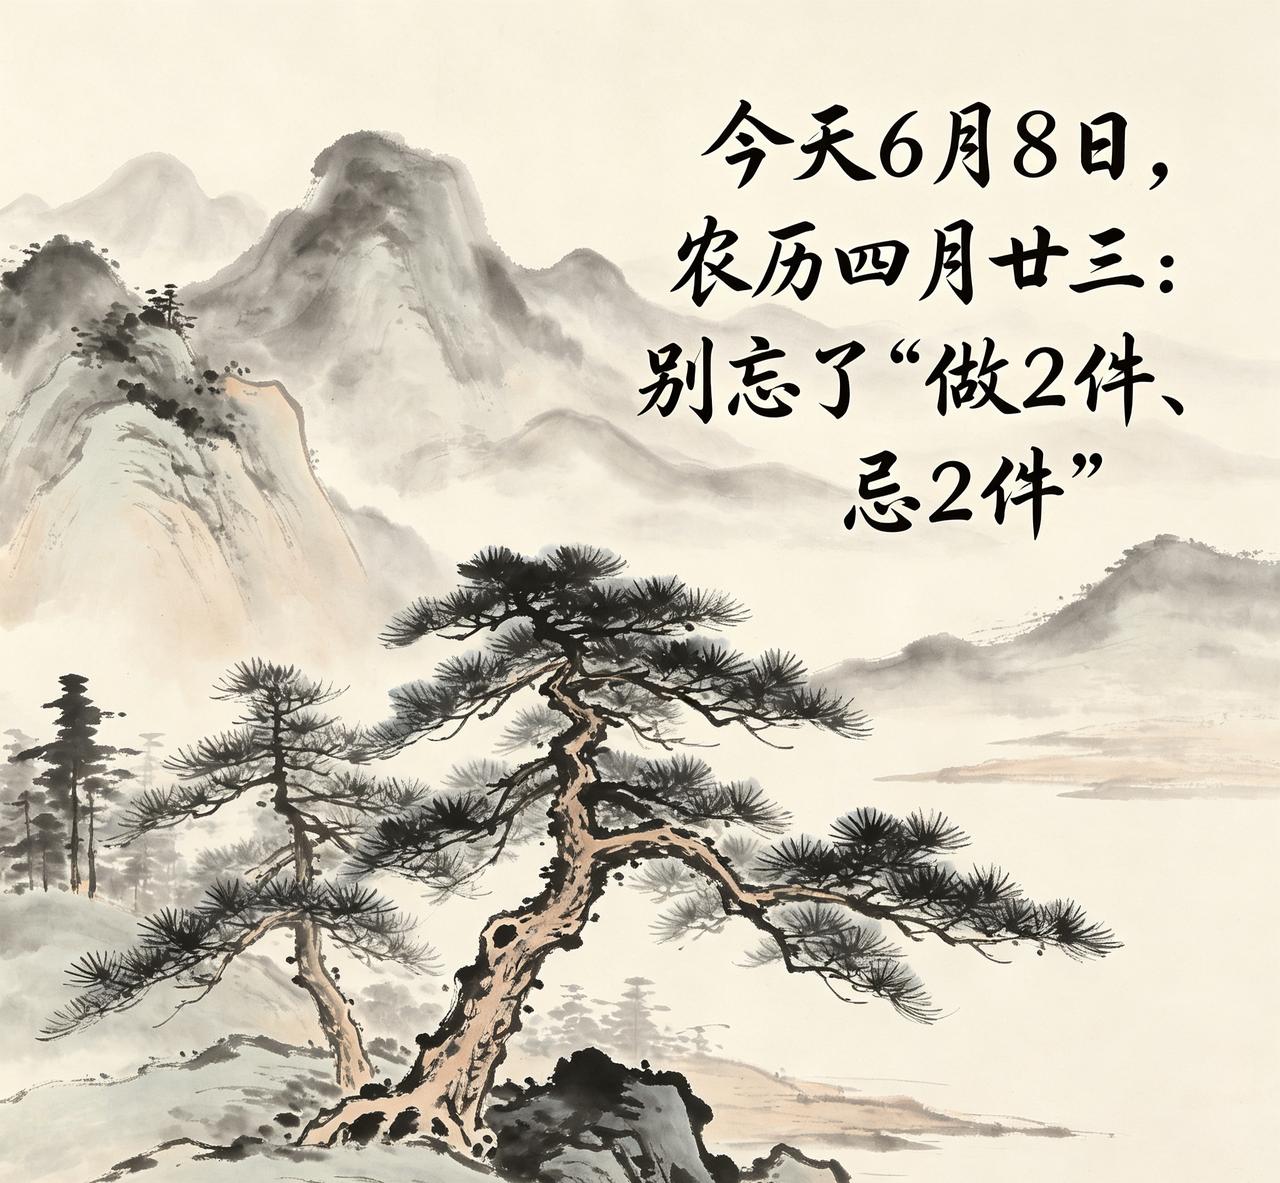 今天6月8日，
农历四月廿三：
别忘了“做2件、
忌2件”